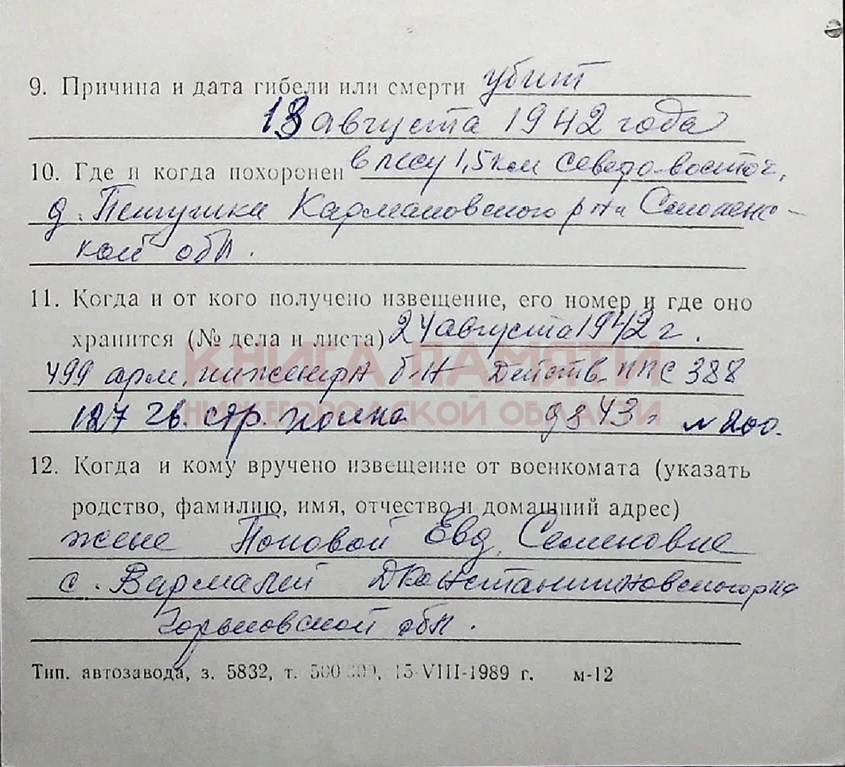 9. Причина и дата гибели или смерти убит
18 августа 1942 года
10. Где и когда похоронен в лесу 1,5 км северо-восточ,
д. Петушки Кармановского р на Смоленс-
кой обл.
11. Когда и от кого получено извещение, его номер и где оно
хранится (№ дела и листа) 24 августа 1942 г.
КНИГА ПАМЯТИ
499 арм. инженерн б-н Действ ппс 388
НИЖЕГОРОДСКОЙ ОБЛАСТИ
127 гв. стр. полка д 843 л № 200.
12. Когда и кому вручено извещение от военкомата (указать
родство, фамилию, имя, отчество и домашний адрес)
жене Поповой Евд. Семеновне
с. Вармалей Дконстантиновского р на
Горьковской обл.
Тип. автозавода, з. 5832, т. 15-VIII-1989 г. м-12